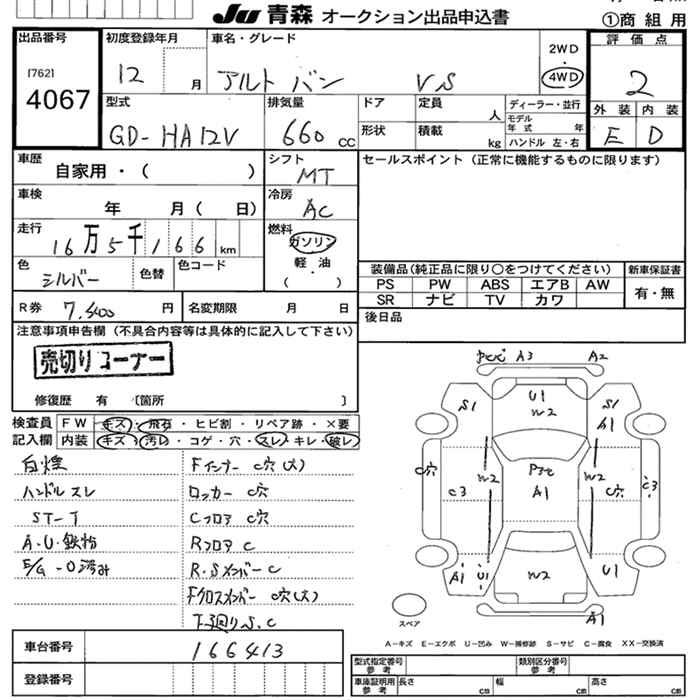 Ju 青森 オークション出品申込書
①商組用
出品番号
[762]
4067
初度登録年月
12 月
車名・グレード
アルト バン VS
2WD
・
4WD
評価点
2
外装 内装
E D
型式
GD-HA12V
排気量
660 cc
ドア
定員
人
ディーラー・並行
モデル年式 年
形状
積載
kg
ハンドル 左・右
車歴
自家用・( )
シフト
MT
セールスポイント(正常に機能するものに限ります)
車検
年 月( 日)
冷房
AC
走行
16万5千166 km
燃料
ガソリン
軽油
( ・ )
色
シルバー
色替
色コード
装備品(純正品に限り○をつけてください)
新車保証書
PS PW ABS エアB AW
有・無
SR ナビ TV カワ
R券 7,400 円
名変期限 月 日
後日品
注意事項申告欄(不具合内容等は具体的に記入して下さい)
売切りコーナー
修復歴 有 〔箇所 〕
検査員記入欄
FW キズ・飛石・ヒビ割・リペア跡・×要
内装 キズ・汚レ・コゲ・穴・スレ・キレ・破レ
白煙
ハンドルスレ
ST-T
A・U・鉄粉
E/G-O済み
Fインナー C穴(大)
ロッカー C穴
Cフロア C穴
Rフロア C
R・Sメンバー C
Fクロスメンバー C穴(大)
下廻りS、C
A3 A2
S1
U1
W2
S1
A1
C穴
C3
W2
A1
W2
C穴
C3
A1
U1
W2
U1
A1
スペア
A-キズ E-エクボ U-凹み W-補修跡 S-サビ C-腐食 XX-交換済
車台番号
166413
登録番号
型式指定番号
参考
類別区分番号
参考
車庫証明用
参考
長さ cm
幅 cm
高さ cm